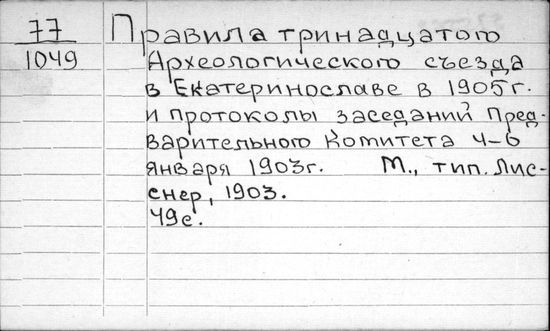 77
1049
Правила тринадцатого
Археологического съезда
в Екатеринославе в 1905г.
и протоколы заседаний Пред-
варительного Комитета 4-6
января 1903г. М., тип. Лис-
снер, 1903.
49с.